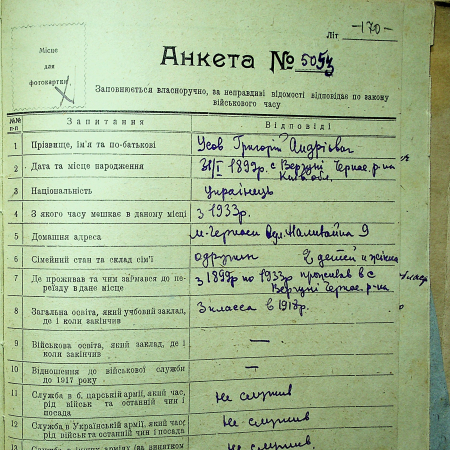 Літ -170-
Місце
для
фотокартки
Анкета № 5053
Заповнюється власноручно, за неправдиві відомості відповідає по закону
військового часу
№№ п-п Запитання Відповіді
1 Прізвище, ім'я та по-батькові Усов Григорій Андрієвич
2 Дата та місце народження 1897 с Вергуни р-на
3 Національність українець
4 З якого часу мешкає в даному місці з 1933 р.
5 Домашня адреса м. Черкаси вул. Наливайка 9
6 Сімейний стан та склад сім'ї одружен 2 детей и жена
7 Де проживав та чим займався до пе-
реїзду в дане місце
з 1897 по 1933 р проживав в с
Вергуні р-на
8 Загальна освіта, який учбовий заклад,
де і коли закінчив
3 класса в 1917 г.
9 Військова освіта, який заклад, де і
коли закінчив —
10 Відношення до військової служби
до 1917 року —
11 Служба в б. царській армії, який час,
рід військ та останній чин і
посада
не служив
12 Служба в Українській армії, який час,
рід військ та останній чин і посада
не служив
13 не служив